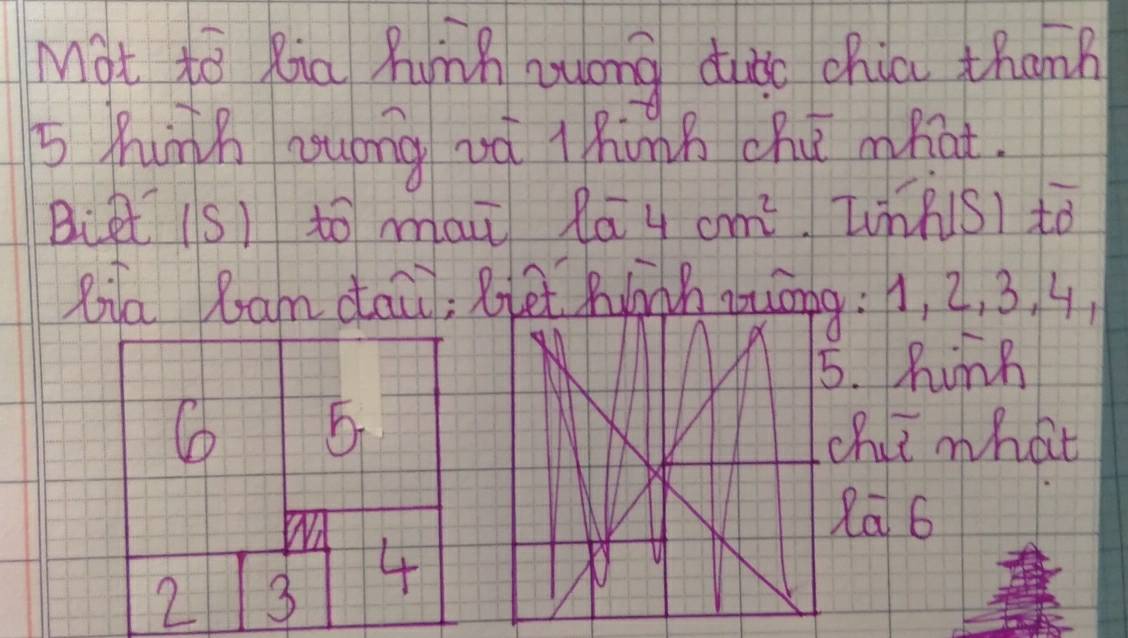 Một tờ bìa hình vuông được chia thành
5 hình vuông và 1 hình chữ nhật.
Biết (S) tô màu là 4 cm². Tính (S) tờ
bìa ban đầu; biết hình vuông: 1, 2, 3, 4,
5. hình
chữ nhật
là 6
6 5
4
2 3